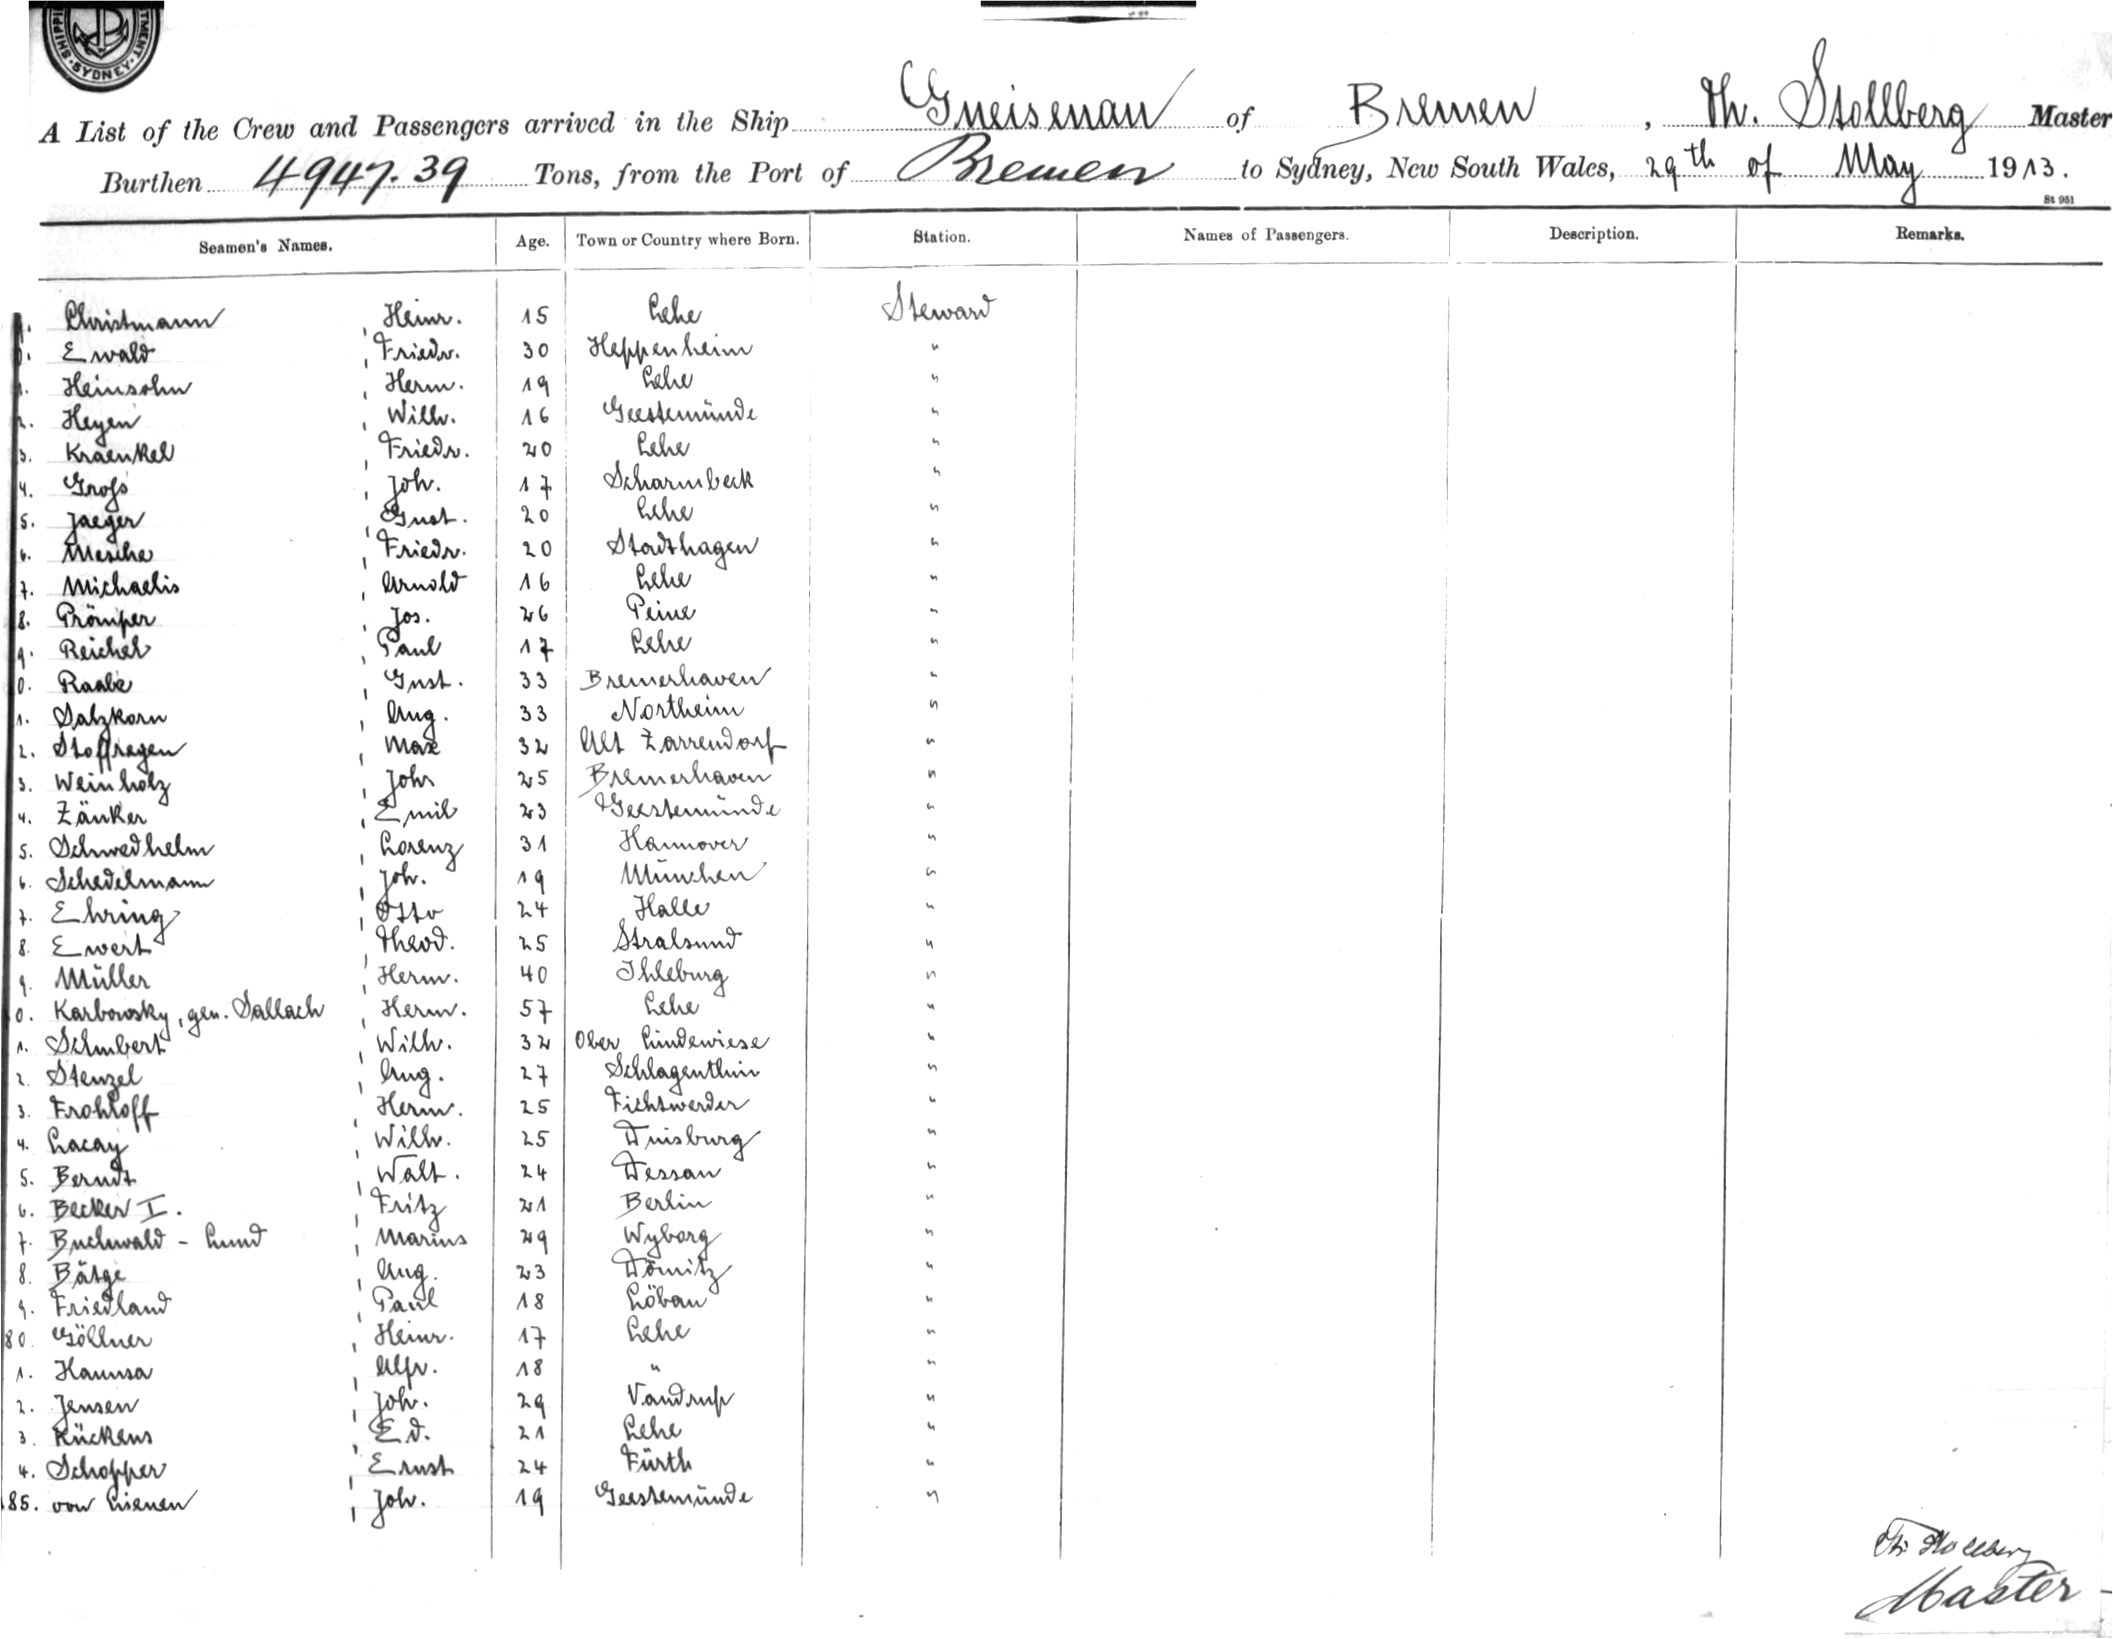 SHIPPI TMENT SYDNEY
A List of the Crew and Passengers arrived in the Ship Gneisenau of Bremen, Th. Stollberg Master
Burthen 4947.39 Tons, from the Port of Bremen to Sydney, New South Wales, 29th of May 1913.
St 951
Seamen's Names. Age. Town or Country where Born. Station. Names of Passengers. Description. Remarks.
9. Christmann , Heinr. 15 Lehe Steward
0. Ewald , Friedr. 30 Heppenheim "
1. Heinsohn , Herm. 19 Lehe "
2. Heyen , Wilh. 16 Geestemünde "
3. Kraenkel , Friedr. 20 Lehe "
4. Groß , Joh. 17 Scharmbeck "
5. Jaeger , Gust. 20 Lehe "
6. Mesche , Friedr. 20 Stadthagen "
7. Michaelis , Arnold 16 Lehe "
8. Prömper , Jos. 26 Peine "
9. Reichel , Paul 17 Lehe "
0. Raabe , Gust. 33 Bremerhaven "
1. Salzkorn , Aug. 33 Northeim "
2. Stoffregen , Max 32 Alt Zarrendorf "
3. Weinholz , Joh 25 Bremerhaven "
4. Zänker , Emil 23 Geestemünde "
5. Schwedhelm , Lorenz 31 Hannover "
6. Schedelmann , Joh. 19 München "
7. Ehring , Otto 24 Halle "
8. Ewert , Theod. 25 Stralsund "
9. Müller , Herm. 40 Ihleburg "
0. Karbowsky, gen. Sallach , Herm. 57 Lehe "
1. Schubert , Wilh. 32 Ober Lindewiese "
2. Stenzel , Aug. 27 Schlagenthin "
3. Frohloff , Herm. 25 Fichtwerder "
4. Lacay , Wilh. 25 Duisburg "
5. Berndt , Walt. 24 Dessau "
6. Becker I. , Fritz 21 Berlin "
7. Buchwald - Lund , Marius 29 Wyborg "
8. Bätge , Aug. 23 Dömitz "
9. Friedland , Paul 18 Löbau "
80. Göllner , Heinr. 17 Lehe "
1. Hannsa , Alfr. 18 " "
2. Jensen , Joh. 29 Vandrup "
3. Rückens , Ed. 21 Lehe "
4. Schopper , Ernst 24 Fürth "
185. von Lienen , Joh. 19 Geestemünde "
Th. Stollberg
Master